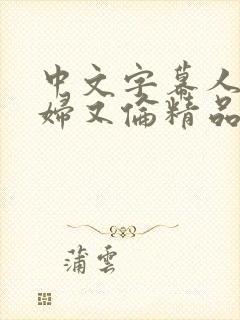 中文字幕人
婦又倫精品
蒲雲